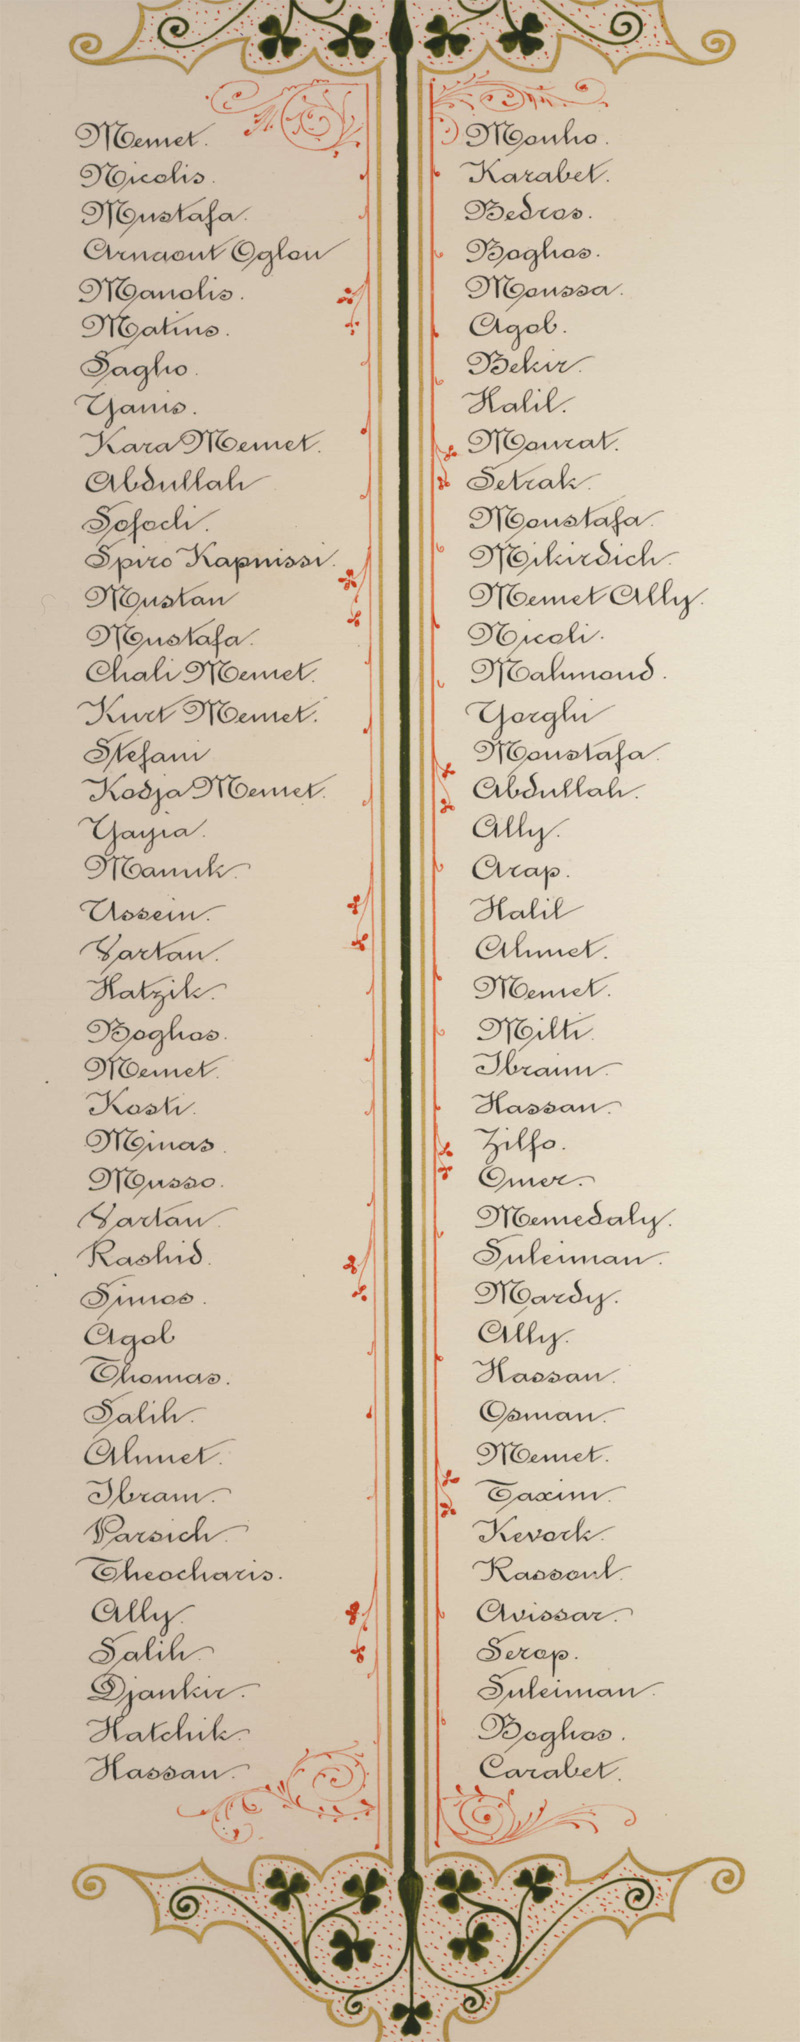 Memet.
Nicolis.
Mustafa.
Arnaout Oglou
Manolis.
Matins.
Sagho.
Yanis.
Kara Memet.
Abdullah
Sofocli.
Spiro Kapnissi.
Mustan
Mustafa.
Chali Memet.
Kurt Memet.
Stefani
Kodja Memet.
Yayia.
Manuk.
Ussein.
Vartan.
Hatzik.
Boghos.
Memet.
Kosti.
Minas.
Musso.
Vartan.
Rashid.
Simos.
Agob
Thomas.
Salih.
Ahmet.
Ibram.
Parsich.
Theocharis.
Ally.
Salih.
Djankir.
Hatchik.
Hassan.
Monho.
Karabet.
Bedros.
Boghos.
Moussa.
Agob.
Bekir.
Halil.
Mourat.
Setrak.
Moustafa.
Mikirdich.
Memet Ally.
Nicoli.
Mahmoud.
Yorghi
Moustafa.
Abdullah.
Ally.
Arap.
Halil
Ahmet.
Memet.
Milti.
Ibraim.
Hassan.
Zilfo.
Omer.
Memedaly.
Suleiman.
Mardy.
Ally.
Hassan.
Osman.
Memet.
Taxim.
Kevork.
Rassoul.
Avissar.
Serop.
Suleiman.
Boghos.
Carabet.